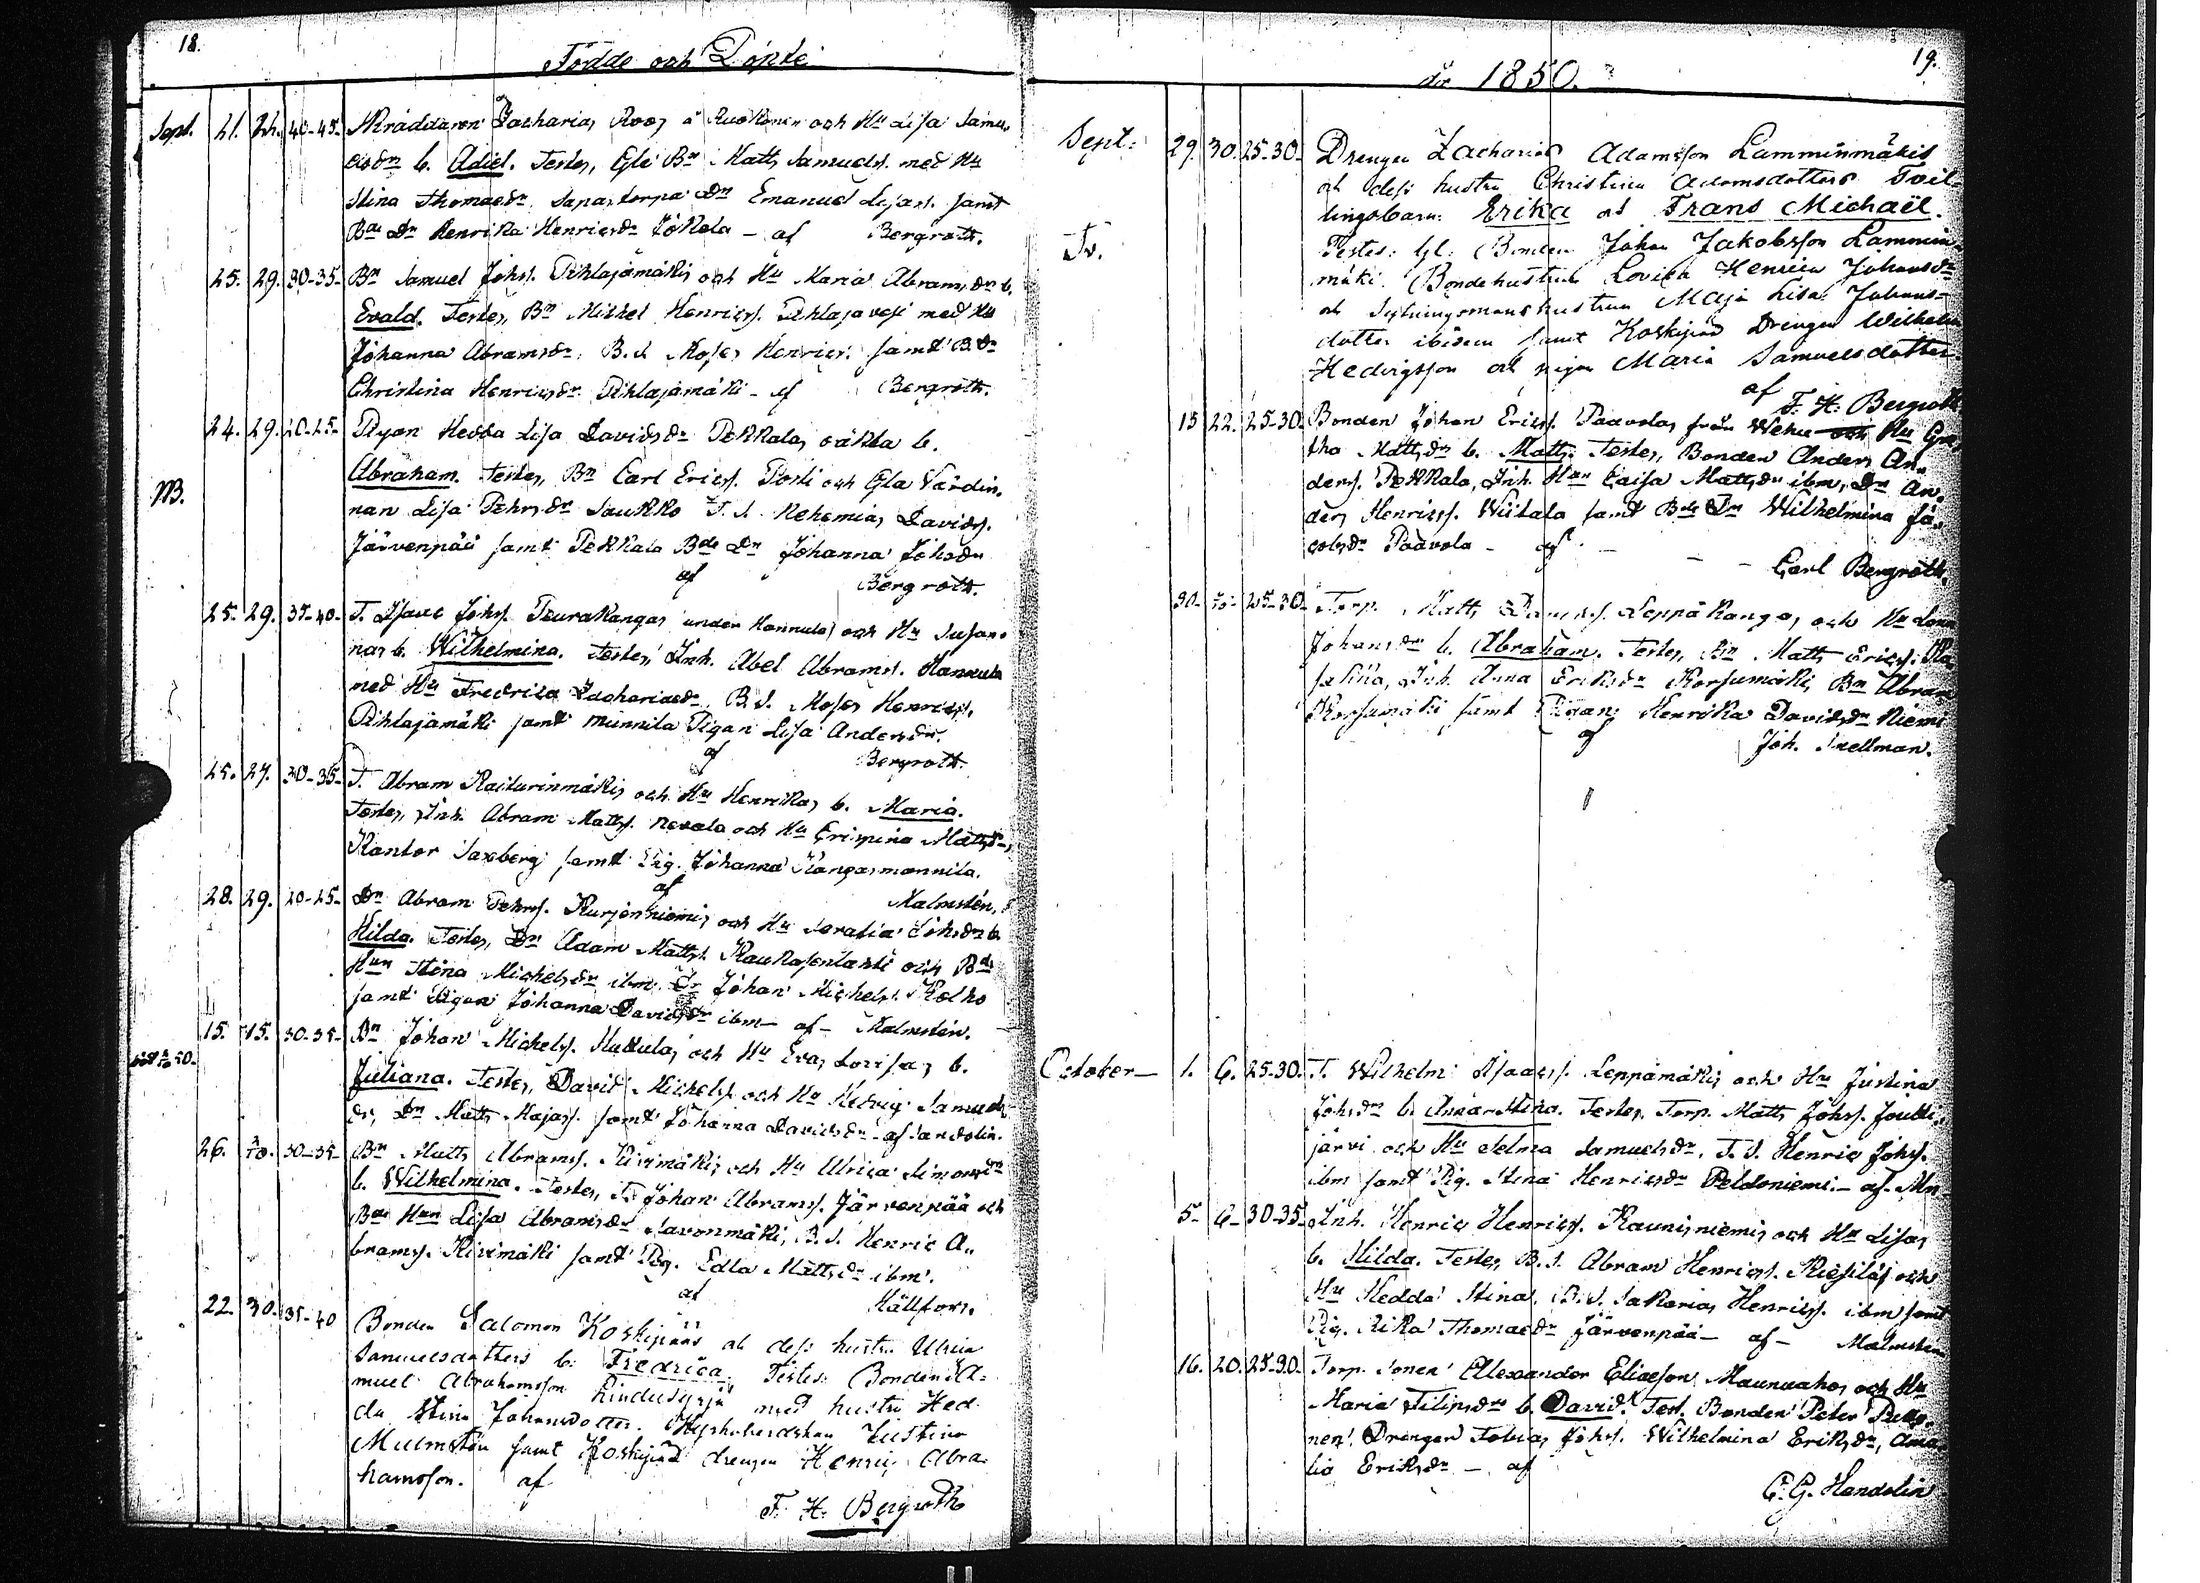 18.
Födde och Döpte
Sept. 21. 22. 40-45- Skräddaren Zacharias Roos å Ruokonen och Hu Lisa Samu,,
elsdr b. Adiel. Testes, Gle Bn Matts Samuelss. med Hu
Stina Thomasdr Dn Emanuel samt
Bde Dr Henrika Henricsdr Jokela - af Bergroth.
25. 29. 30-35- Bn Samuel Johss. Pihlajamäkis och Hu Maria Abramsdrs b.
Evald. Testes, Bn Michel Henricss. Pihlajavesi med Hu
Johanna Abramsdr, B.S. Moses Henricss. samt B.Dr
Christina Henricsdr Pihlajamäki - af Bergroth.
24. 29. 20-25- Pigan Hedda Lisa Davidsdr Pekkalas oäkta b.
NB. Abraham. Testes, Bn Carl Ericss. Posti och Gla Värdin,,
nan Lisa Pehrsdr Saukko T.S. Nehemias Davidss.
Järvenpää samt Pekkala Bde Dr Johanna Johsdr
af Bergroth.
25. 29. 35-40- T. Isaac Johss. Teurakangas under Hannula och Hu Susan,,
nas b. Wilhelmina. Testes, Inh. Abel Abramss. Hannula
med Hu Fredrica Zachariasdr, B.S. Moses Henricss.
Pihlajamäki samt Munnila Pigan Lisa Andersdr.
af Bergroth.
25. 27. 30-35- T. Abram Raiturinmäkis och Hu Henrikas b. Maria.
Testes, Inh. Abram Mattss. Nevala och Hu Crispina Mattsdr,
Kantor Saxberg samt Pig. Johanna Kangasmannila.
af Malmstén.
28. 29. 20-25- Dn Abram Pehrss. Kurjenniemis och Hu Serafia Johsdrs b.
Hilda. Testes, Dn Adam Mattss. Kaukasenlaksi och Bde
Hun Stina Michelsdr ibm. Dr Johan Michelss. Kolho
samt Pigan Johanna Davidsdr ibm - af - Malmstén.
15. 15. 30-35- Bn Johan Michelss. Huttulas och Hu Evas Lovisas b.
Juliana. Testes, David Michelss. och Hu Hedvig Samuels
dr, Dn Matts Majass. samt Johanna Davidsdr - af Sandelin.
26. 30. 30-35- Bn Matts Abramss. Kivimäkis och Hu Ulrica Simonsdrs
b. Wilhelmina. Testes, T. Johan Abramss. Järvenpää och
Bde Hun Lisa Abramsdr Savonmäki, B.S. Henric A,,
bramss. Kivimäki samt Pig. Edla Mattsdr ibm.
af Hällfors.
22. 30. 35-40 Bonden Salomon Koskipääs ok dess hustru Ulrica
Samuelsdotters b. Fredrica. Testes: Bonden Sa-
muel Abrahamsson med hustru Hed-
da Stina Johansdotter. Justina
Malmstén samt Koskipää drengen Henric Abra-
hamsson. af
F. H. Bergroth
19.
år 1850.
Sept: 29. 30. 25-30- Drengen Zacharias Adamsson Lamminmäkis
ok dess hustru Christina Adamsdotters Tvil-
lingsbarn: Erika ok Frans Michaël.
Tv. Testes: Gl: Bonden Johan Jakobsson Lammin-
mäki. Bondehustrun Lovisa Henrica Johansdr
ok Sytningsmanshustrun Maja Lisa Johans-
dotter ibidem samt Koskipää Drengen Wilhelm
Hedvigsson ok pigan Maria Samuelsdotter
af F. H. Bergroth
15 22. 25-30. Bonden Johan Ericss. Paavolas från Wehu och Hu Gre,,
tha Mattsdrs b. Matts. Testes, Bonden Anders An,,
derss. Pekkala, Inh. Hun Caisa Mattsdr ibm, Dn An,,
ders Henricss. Wiitala samt Bde Dr Wilhelmina Ja,,
cobsdr Paavola - af - - Carl Bergroth.
30. 30. 25-30. Torp. Matts Leppäkangas och Hu
Johansdrs b. Abraham. Testes, Bn Matts Ericss.
Inh. Anna Eriksdr Korsumäki, Bn Abram
Korsumäki samt Pigan Henrika Davidsdr Niemi
af Joh. Snellman.
October - 1. 6. 25-30. T. Wilhelm Isaacss. Leppämäkis och Hu Justina
Johsdrs b. Anna Stina. Testes, Torp. Matts Johss. Joutti,,
järvi och Hu Selma Samuelsdr, T.S. Henric Johss.
ibm samt Pig. Stina Henricsdr Peldoniemi - af - Mn
5. 6. 30-35- Inh. Henrics Henricss. Raunisniemis och Hu Lisas
b. Hilda. Testes, B.S. Abram Henricss. och
Hu Hedda Stina. B.S. Sakarias Henricss. ibm samt
Pig. Rika Thomasdr Järvenpää - af - Malmstén
16. 20. 25-30. Torp. Sonen Alexander Eliasson Maunuahos och Hu
Maria Filipsdrs b. David. Test. Bonden Peter
nen. Drengen Tobias Johss. Wilhelmina Eriksdr, Ama,,
lia Eriksdr - af
C. G. Handolin